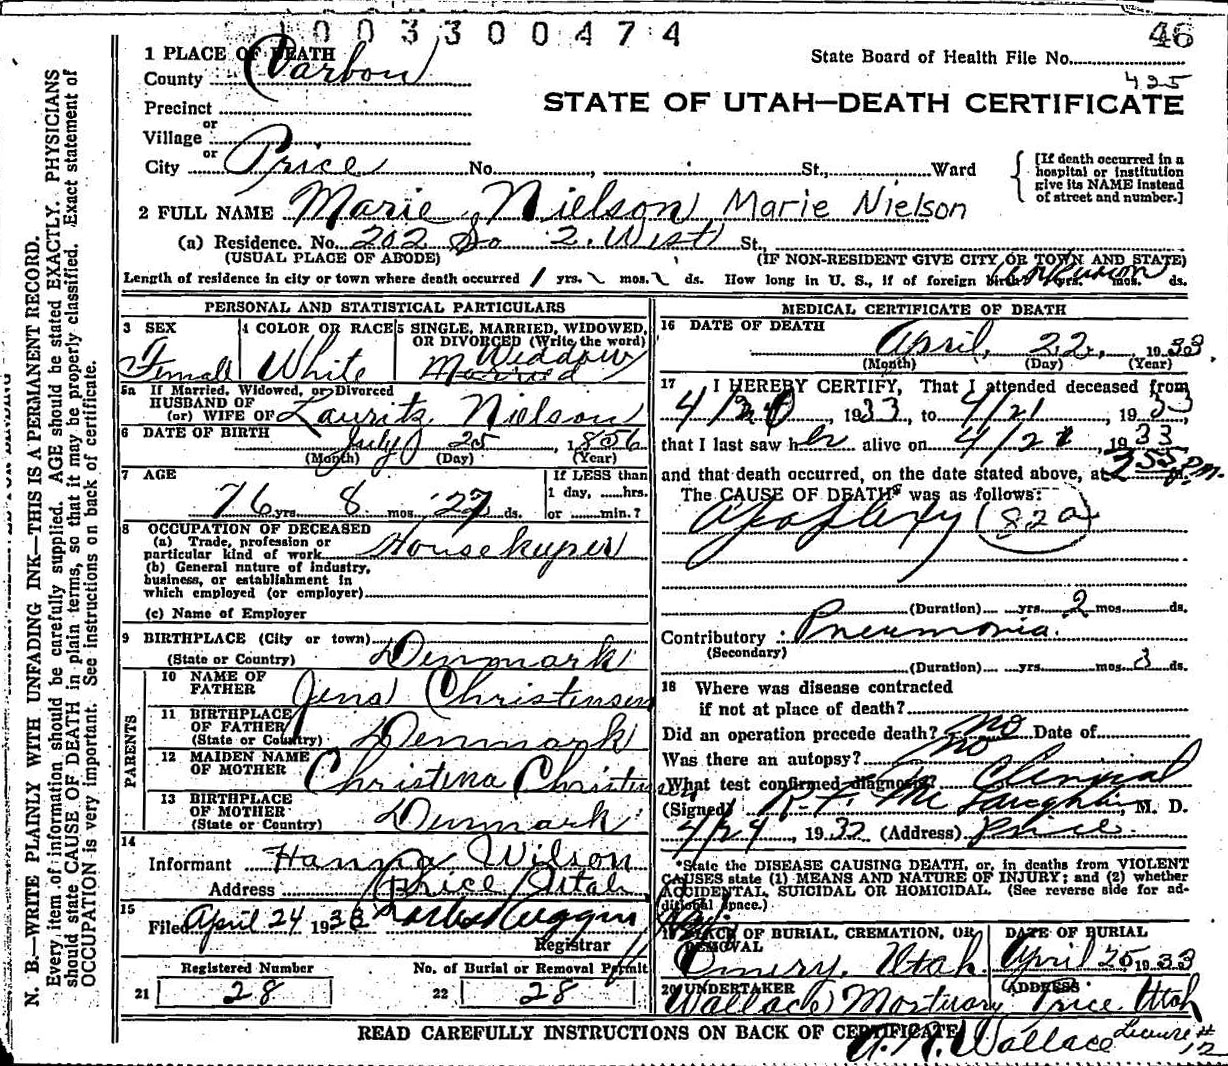 1003300474
46
State Board of Health File No.
425
1 PLACE OF DEATH
County Carbon
STATE OF UTAH—DEATH CERTIFICATE
Precinct
or
Village
or
City Price No. , St., Ward
[If death occurred in a hospital or institution give its NAME instead of street and number.]
2 FULL NAME Marie Nielson Marie Nielson
(a) Residence. No. 202 So 2. West St.,
(USUAL PLACE OF ABODE) (IF NON-RESIDENT GIVE CITY OR TOWN AND STATE)
Length of residence in city or town where death occurred 1 yrs. mos. ds. How long in U. S., if of foreign birth? yrs. mos. ds.
PERSONAL AND STATISTICAL PARTICULARS
3 SEX 4 COLOR OR RACE 5 SINGLE, MARRIED, WIDOWED, OR DIVORCED (Write the word)
Female White Widdow
Married
5a If Married, Widowed, or Divorced
HUSBAND OF
(or) WIFE OF Lauritz Nielson
6 DATE OF BIRTH July 25, 1856
(Month) (Day) (Year)
7 AGE If LESS than
1 day, hrs.
76 yrs. 8 mos. 27 ds. or min.?
8 OCCUPATION OF DECEASED
(a) Trade, profession or
particular kind of work Housekeeper
(b) General nature of industry,
business, or establishment in
which employed (or employer)
(c) Name of Employer
9 BIRTHPLACE (City or town)
(State or Country) Denmark
PARENTS
10 NAME OF
FATHER Jens Christensen
11 BIRTHPLACE
OF FATHER
(State or Country) Denmark
12 MAIDEN NAME
OF MOTHER Christena
13 BIRTHPLACE
OF MOTHER
(State or Country) Denmark
14
Informant Hanna Wilson
Address Price Utah
15
Filed April 24 1933
Registrar
Registered Number No. of Burial or Removal Permit
21 28 22 28
MEDICAL CERTIFICATE OF DEATH
16 DATE OF DEATH
April, 22, 1933
(Month) (Day) (Year)
17 I HEREBY CERTIFY, That I attended deceased from
4/20, 1933, to 4/21, 1933
that I last saw her alive on 4/21, 1933
and that death occurred, on the date stated above, at 2 55 P.m.
The CAUSE OF DEATH* was as follows:
Apoplexy (82a)
(Duration) yrs. 2 mos. ds.
Contributory Pneumonia.
(Secondary)
(Duration) yrs. mos. 3 ds.
18 Where was disease contracted
if not at place of death?
Did an operation precede death? no Date of
Was there an autopsy? no
What test confirmed diagnosis? Clinical
(Signed) McLaughlin, M. D.
4/24, 1933 (Address) Price.
*State the DISEASE CAUSING DEATH, or, in deaths from VIOLENT
CAUSES state (1) MEANS AND NATURE OF INJURY; and (2) whether
ACCIDENTAL, SUICIDAL OR HOMICIDAL. (See reverse side for ad-
ditional space.)
19 PLACE OF BURIAL, CREMATION, OR REMOVAL DATE OF BURIAL
Emery, Utah April 25 1933
20 UNDERTAKER ADDRESS
Wallace Mortuary Price Utah
READ CAREFULLY INSTRUCTIONS ON BACK OF CERTIFICATE
Wallace License # 12
N. B.—WRITE PLAINLY WITH UNFADING INK—THIS IS A PERMANENT RECORD.
Every item of information should be carefully supplied. AGE should be stated EXACTLY. PHYSICIANS
should state CAUSE OF DEATH in plain terms, so that it may be properly classified. Exact statement of
OCCUPATION is very important. See instructions on back of certificate.